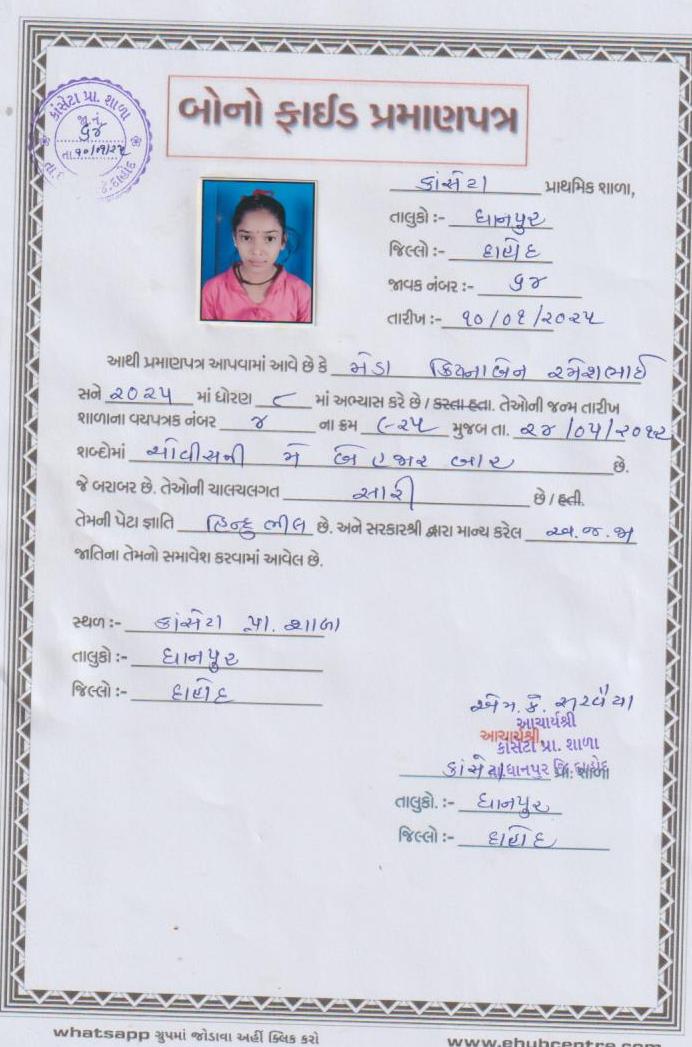 બોનો ફાઈડ પ્રમાણપત્ર
કાંસેટા પ્રા. શાળા
જા.નં.
૬૪
તા. ૧૦/૦૧/૨૫
કાંસેટા પ્રાથમિક શાળા,
તાલુકો :- ધાનપુર
જિલ્લો :- દાહોદ
જાવક નંબર :- ૬૪
તારીખ :- ૧૦/૦૧/૨૦૨૫
આથી પ્રમાણપત્ર આપવામાં આવે છે કે મેડા ક્રિષ્નાબેન રમેશભાઈ
સને ૨૦૨૫ માં ધોરણ ૮ માં અભ્યાસ કરે છે / કરતા હતા. તેઓની જન્મ તારીખ
શાળાના વયપત્રક નંબર ૪ ના ક્રમ ૯૨૫ મુજબ તા. ૨૪/૦૫/૨૦૧૨
શબ્દોમાં ચોવીસની મે બે હજાર બાર છે.
જે બરાબર છે. તેઓની ચાલચલગત સારી છે / હતી.
તેમની પેટા જ્ઞાતિ હિન્દુ ભીલ છે. અને સરકારશ્રી દ્વારા માન્ય કરેલ અ.જ.જા
જાતિના તેમનો સમાવેશ કરવામાં આવેલ છે.
સ્થળ :- કાંસેટા પ્રા. શાળા
તાલુકો :- ધાનપુર
જિલ્લો :- દાહોદ
એમ. કે. સરવૈયા
આચાર્યશ્રી
આચાર્યશ્રી
કાંસેટા પ્રા. શાળા
કાંસેટા પ્રા: શાળા
તાલુકો. :- ધાનપુર
જિલ્લો :- દાહોદ
whatsapp ગ્રુપમાં જોડાવા અહીં ક્લિક કરો
www.ehubcentre.com